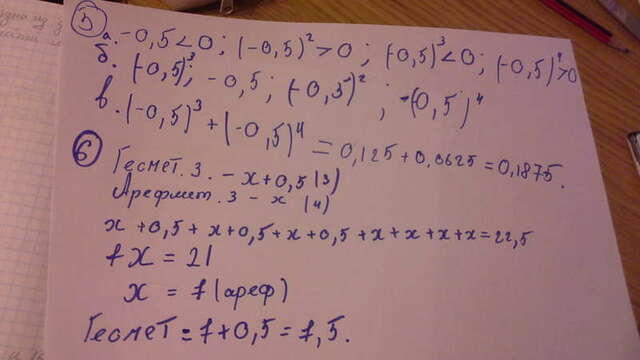 5 а. -0,5<0; (-0,5)²>0; (-0,5)³<0; (-0,5)⁴>0
б. (-0,5)³; -0,5; (-0,5)²; (-0,5)⁴
в. (-0,5)³+(-0,5)⁴ = 0,125+0,0625=0,1875.
6 Геомет. З. - x+0,5 (3)
Арефмет. З - x (4)
x+0,5+x+0,5+x+0,5+x+x+x+x=22,5
7x=21
x = 7 (ареф)
Геомет = 7+0,5=7,5.